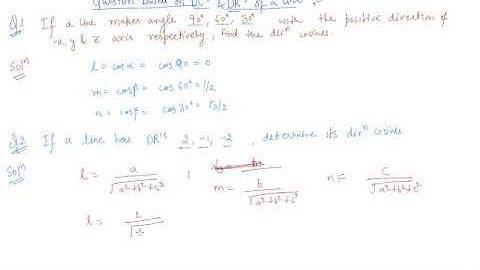 Question based on DC's & DR's of a Line :-
Q1 If a line makes angle 90°, 60°, 30° with the positive direction of
x, y & z axis respectively, find the dirⁿ cosines.
Solⁿ l = cosα = cos 90 = 0
m = cosβ = cos 60° = 1/2
n = cosγ = cos 30° = √3/2
Q2 If a line has DR's 2, -1, -2 , determine its dirⁿ cosines.
Solⁿ l = a/√(a²+b²+c²) , m = b/√(a²+b²+c²) n = c/√(a²+b²+c²)
l =